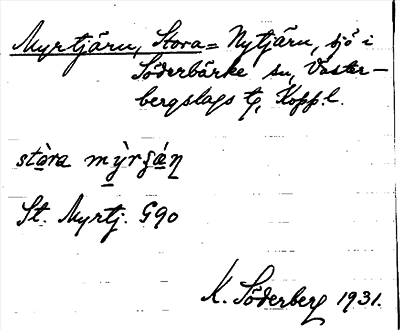 Myrtjärn, Stora = Nytjärn, sjö i
Söderbärke sn, Väster-
bergslags tg, Kopp. l.
stòra mỳrʂä́ṇ
St. Myrtj. G90
K. Söderberg 1931.